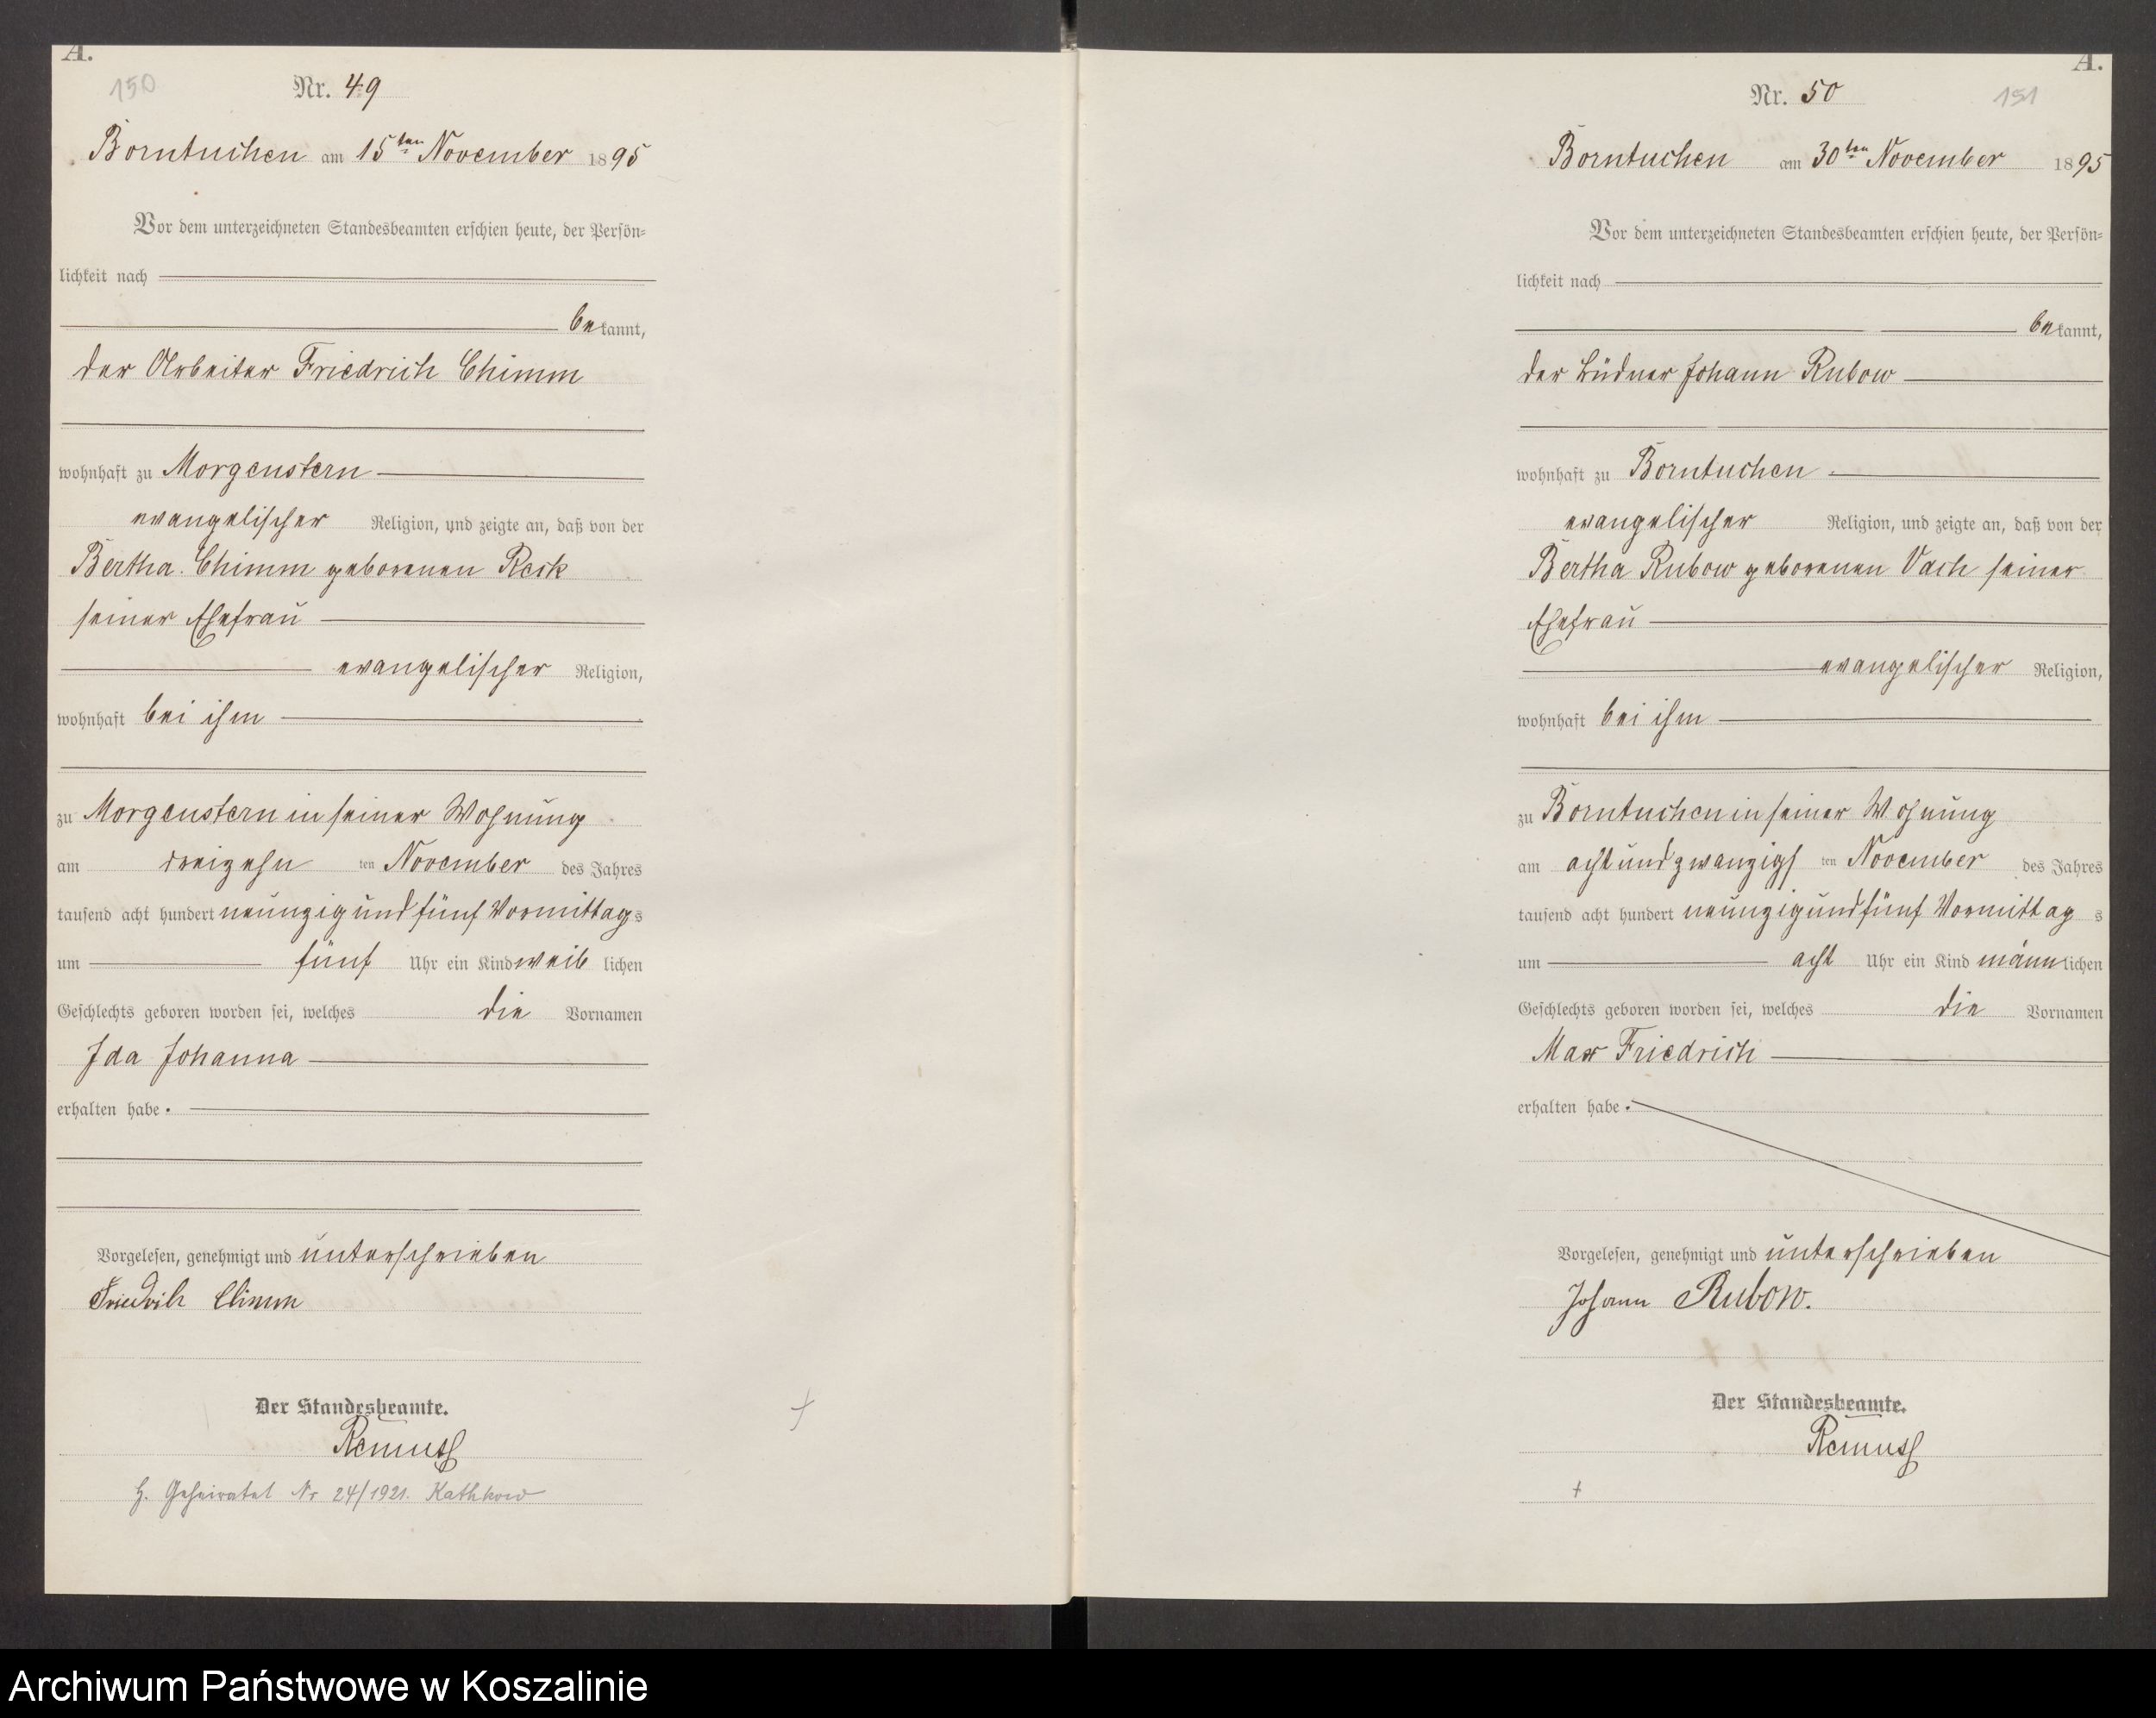 A.
150
Nr. 49
Borntuchen am 15ten November 1895
Vor dem unterzeichneten Standesbeamten erschien heute, der Persön-
lichkeit nach
bekannt,
der Arbeiter Friedrich Chimm
wohnhaft zu Morgenstern
evangelischer Religion, und zeigte an, daß von der
Bertha Chimm geborenen Reck
seiner Ehefrau
evangelischer Religion,
wohnhaft bei ihm
zu Morgenstern in seiner Wohnung
am dreizehn ten November des Jahres
tausend acht hundert neunzig und fünf Vormittags
um fünf Uhr ein Kind weiblichen
Geschlechts geboren worden sei, welches die Vornamen
Ida Johanna
erhalten habe.
Vorgelesen, genehmigt und unterschrieben
Friedrich Chimm
Der Standesbeamte.
Remus
H. Geheiratet Nr 24/1921. Kathkow
A.
Nr. 50
151
Borntuchen am 30ten November 1895
Vor dem unterzeichneten Standesbeamten erschien heute, der Persön-
lichkeit nach
bekannt,
der Büdner Johann Rubow
wohnhaft zu Borntuchen
evangelischer Religion, und zeigte an, daß von der
Bertha Rubow geborenen Vach seiner
Ehefrau
evangelischer Religion,
wohnhaft bei ihm
zu Borntuchen in seiner Wohnung
am achtundzwanzigs ten November des Jahres
tausend acht hundert neunzig und fünf Vormittags
um acht Uhr ein Kind männlichen
Geschlechts geboren worden sei, welches die Vornamen
Max Friedrich
erhalten habe.
Vorgelesen, genehmigt und unterschrieben
Johann Rubow.
Der Standesbeamte.
Remus
Archiwum Państwowe w Koszalinie